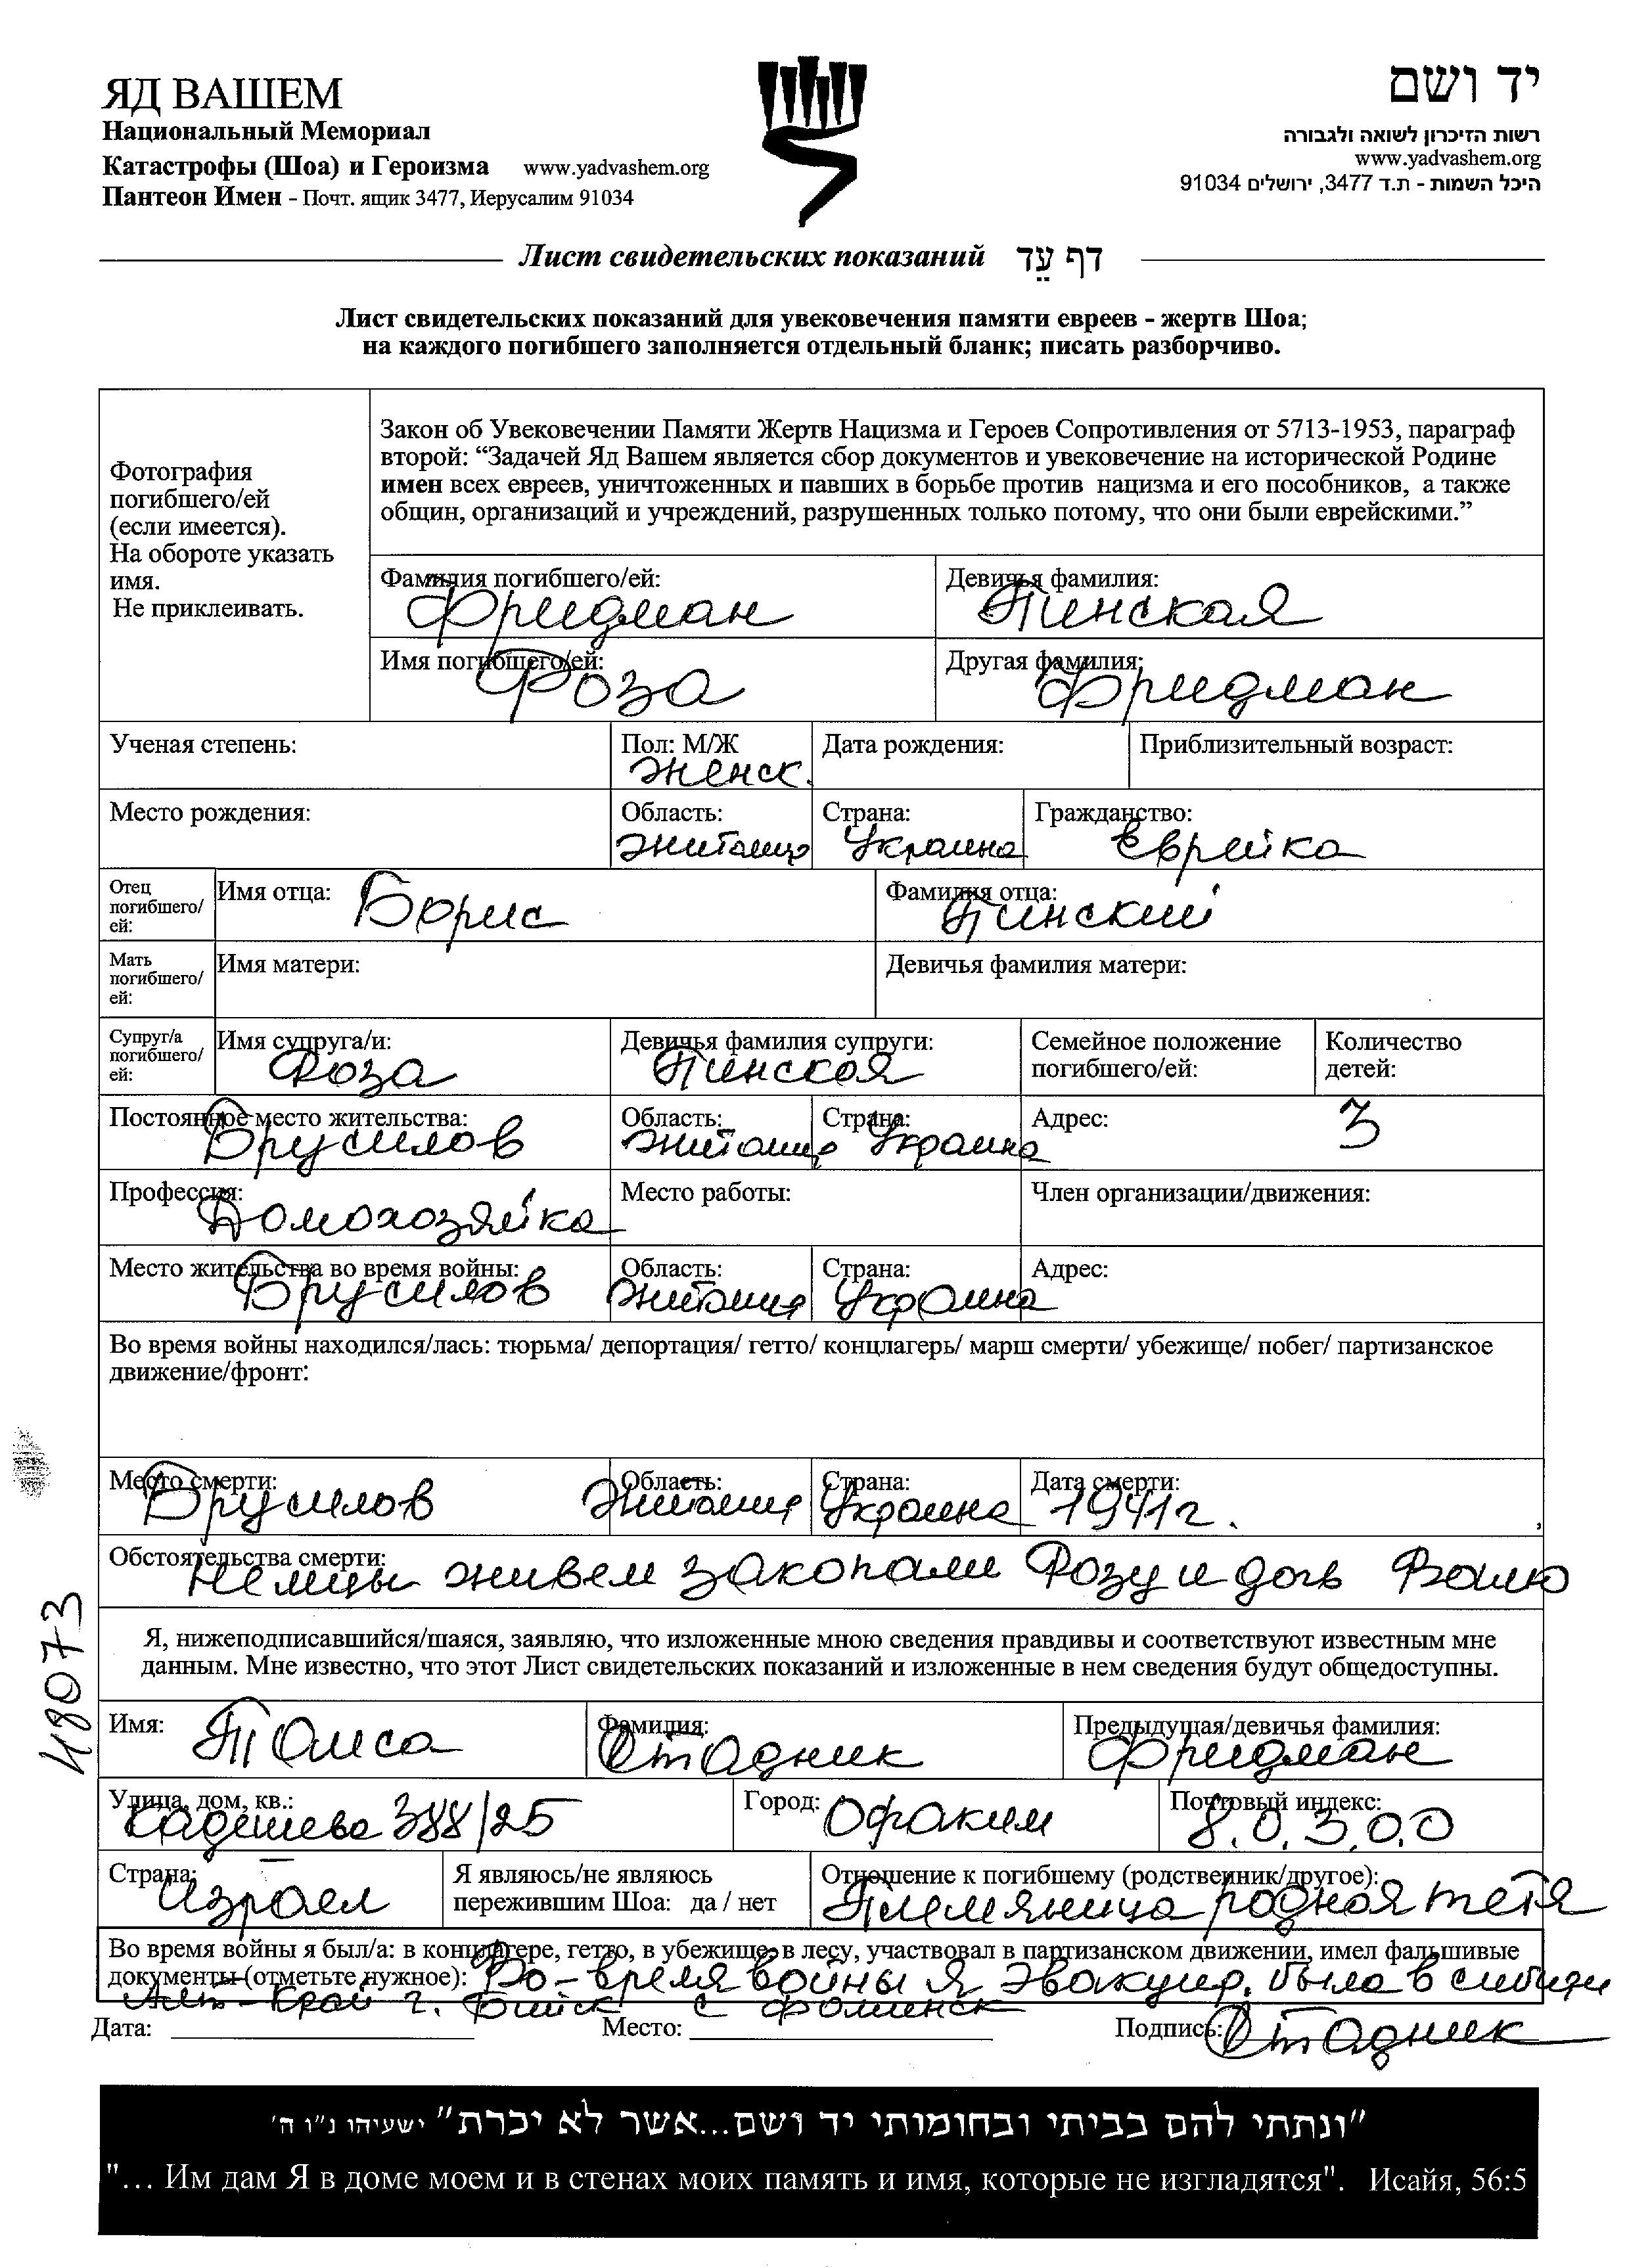 ЯД ВАШЕМ
Национальный Мемориал
Катастрофы (Шоа) и Героизма www.yadvashem.org
Пантеон Имен - Почт. ящик 3477, Иерусалим 91034
יד ושם
רשות הזיכרון לשואה ולגבורה
www.yadvashem.org
היכל השמות - ת.ד 3477, ירושלים 91034
Лист свидетельских показаний דף עֵד
Лист свидетельских показаний для увековечения памяти евреев - жертв Шоа;
на каждого погибшего заполняется отдельный бланк; писать разборчиво.
Фотография
погибшего/ей
(если имеется).
На обороте указать
имя.
Не приклеивать.
Закон об Увековечении Памяти Жертв Нацизма и Героев Сопротивления от 5713-1953, параграф
второй: “Задачей Яд Вашем является сбор документов и увековечение на исторической Родине
имен всех евреев, уничтоженных и павших в борьбе против нацизма и его пособников, а также
общин, организаций и учреждений, разрушенных только потому, что они были еврейскими.”
Фамилия погибшего/ей: Девичья фамилия:
Фридман Пинская
Имя погибшего/ей: Другая фамилия:
Роза Фридман
Ученая степень: Пол: М/Ж Дата рождения: Приблизительный возраст:
Женск.
Место рождения: Область: Страна: Гражданство:
Житомир Украина Еврейка
Отец погибшего/ей: Имя отца: Борис Фамилия отца: Пинский
Мать погибшего/ей: Имя матери: Девичья фамилия матери:
Супруг/а погибшего/ей: Имя супруга/и: Девичья фамилия супруги: Семейное положение погибшего/ей: Количество детей:
Роза Пинская
3
Постоянное место жительства: Область: Страна: Адрес:
Брусилов Житомир Украина
Профессия: Место работы: Член организации/движения:
Домохозяйка
Место жительства во время войны: Область: Страна: Адрес:
Брусилов Житомир Украина
Во время войны находился/лась: тюрьма/ депортация/ гетто/ концлагерь/ марш смерти/ убежище/ побег/ партизанское
движение/фронт:
Место смерти: Область: Страна: Дата смерти:
Брусилов Житомир Украина 1941г.
Обстоятельства смерти:
Немцы живем закопали Розу и дочь Фаню
Я, нижеподписавшийся/шаяся, заявляю, что изложенные мною сведения правдивы и соответствуют известным мне
данным. Мне известно, что этот Лист свидетельских показаний и изложенные в нем сведения будут общедоступны.
Имя: Фамилия: Предыдущая/девичья фамилия:
Таиса Стадник Фридман
Улица, дом, кв.: Город: Почтовый индекс:
Кадешева 388/25 Офаким 8.0.3.0.0
Страна: Я являюсь/не являюсь Отношение к погибшему (родственник/другое):
пережившим Шоа: да / нет
Израел Племяница родная тетя
Во время войны я был/а: в концлагере, гетто, в убежище, в лесу, участвовал в партизанском движении, имел фальшивые
документы (отметьте нужное): Во-время войны я эвакуир. была в сибири
Алт-Край г. Бийск с фоминск
Дата: Место: Подпись: Стадник
48073
"ונתתי להם בביתי ובחומותי יד ושם...אשר לא יכרת" ישעיהו נ"ו ה'
"... Им дам Я в доме моем и в стенах моих память и имя, которые не изгладятся". Исайя, 56:5